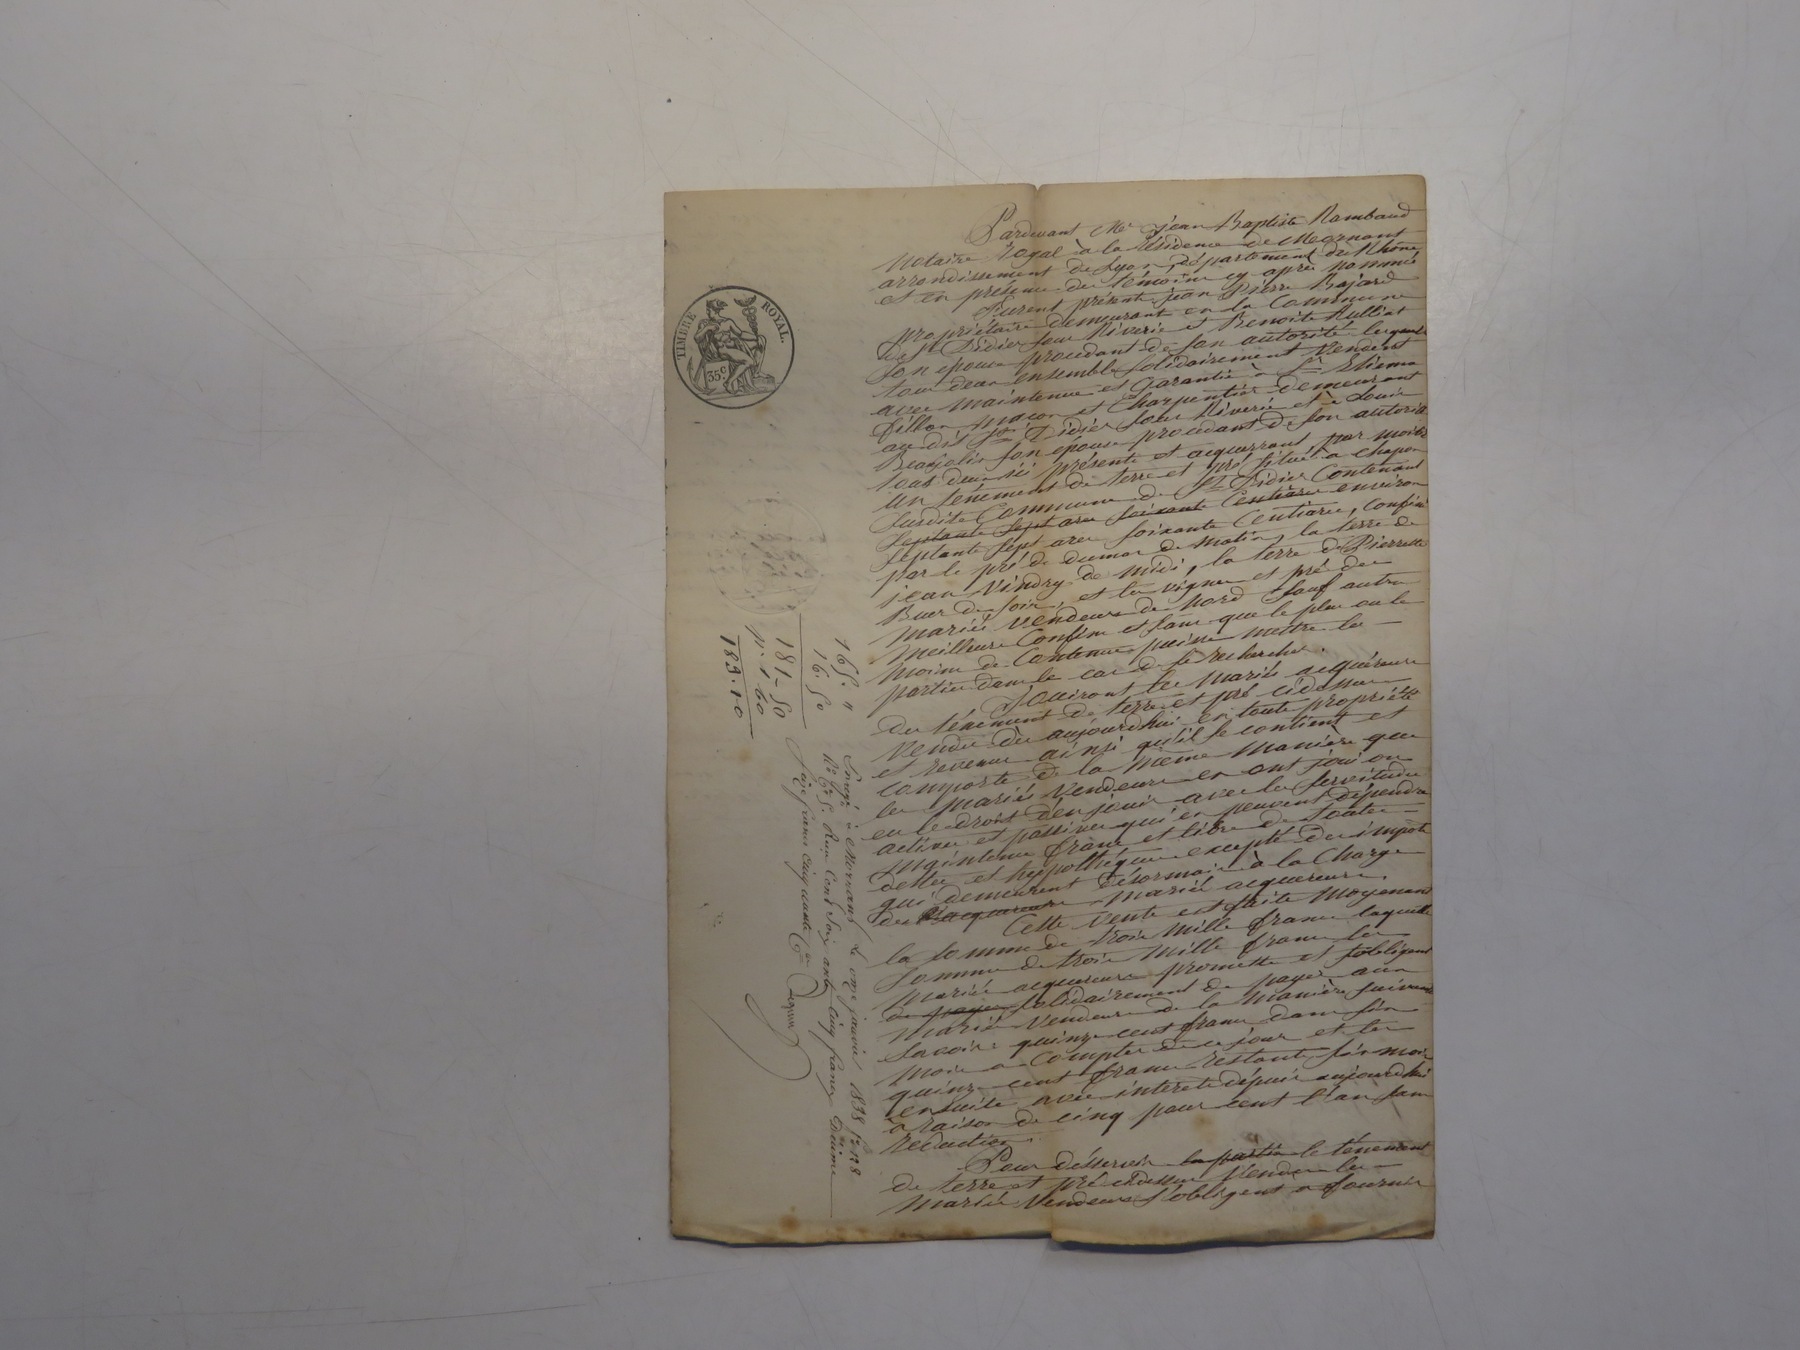 Pardevant Me jean Baptiste Rambaud
Notaire Royal à la Résidence de Mornant
arrondissement de Lyon, département du Rhône,
et en présence des témoins cy après nommés
Furent présents jean Pierre Bajard
propriétaire demeurant en la Commune
de St Didier sous Riverie et Benoite Rulliat
son épouse procédant de son autorité lesquels
tous deux ensemble solidairement Vendent
avec maintenue et Garantie à Sr Etienne
fillon maçon et Charpentier demeurant
au dit St Didier sous Riverie et à Louise
Beaujolin son épouse procédant de son autorité
tous deux ici présents et acquerrants par moitié
un tènement de terre et pré situé à chapon
susdite Commune de St Didier Contenant
Septante Sept ares soixante Centiares environ
Septante Sept ares soixante Centiares, confiné
par le pré de dumas de matin, la terre de
jean Vindry de midi, la terre de Pierrette
Buer de soir, et les vignes et pré des
mariés Vendeurs de Nord Sauf autres
meilleurs Confins et sans que le plus ou le
moins de Contenue puisse mettre les
parties dans le cas de se rechercher.
Jouiront les mariés acquéreurs
du tènement de terre et pré cidessus
Vendu dès aujourdhui en toute propriété
et revenus ainsi qu'il se contient et
comporte de la même manière que
les mariés Vendeurs en ont joui ou
eu le droit d'en jouir avec les servitudes
actives et passives qui en peuvent dépendre
maintenu franc et libre de toutes
dettes et hypothèques excepté des impôts
qui demeurent désormais à la Charge
des acquereurs mariés acquereurs.
Cette Vente est faite moyennant
la somme de trois mille francs laquelle
somme de trois mille francs les
mariés acquereurs promettent et s'obligent
de payer solidairement de payer aux
mariés Vendeurs de la manière suivante
savoir: quinze cent francs dans six
mois a Compter de ce jour et les
quinze cent francs restants six mois
ensuite avec intérêts depuis aujourdhui
à raison de cinq pour cent l'an sans
réduction.
Pour désservir les parties le tènement
de terre et pré cidessus Vendu les
mariés Vendeurs s'obligent a fournir
TIMBRE ROYAL.
35c
165. "
16. 50
181-50
p. 1 60
183.10
Enregé à Mornant, Le onze janvier 1838 fo 128
Ro Reçu Cent Soixante Cinq francs Dixième
Seize francs cinquante ces